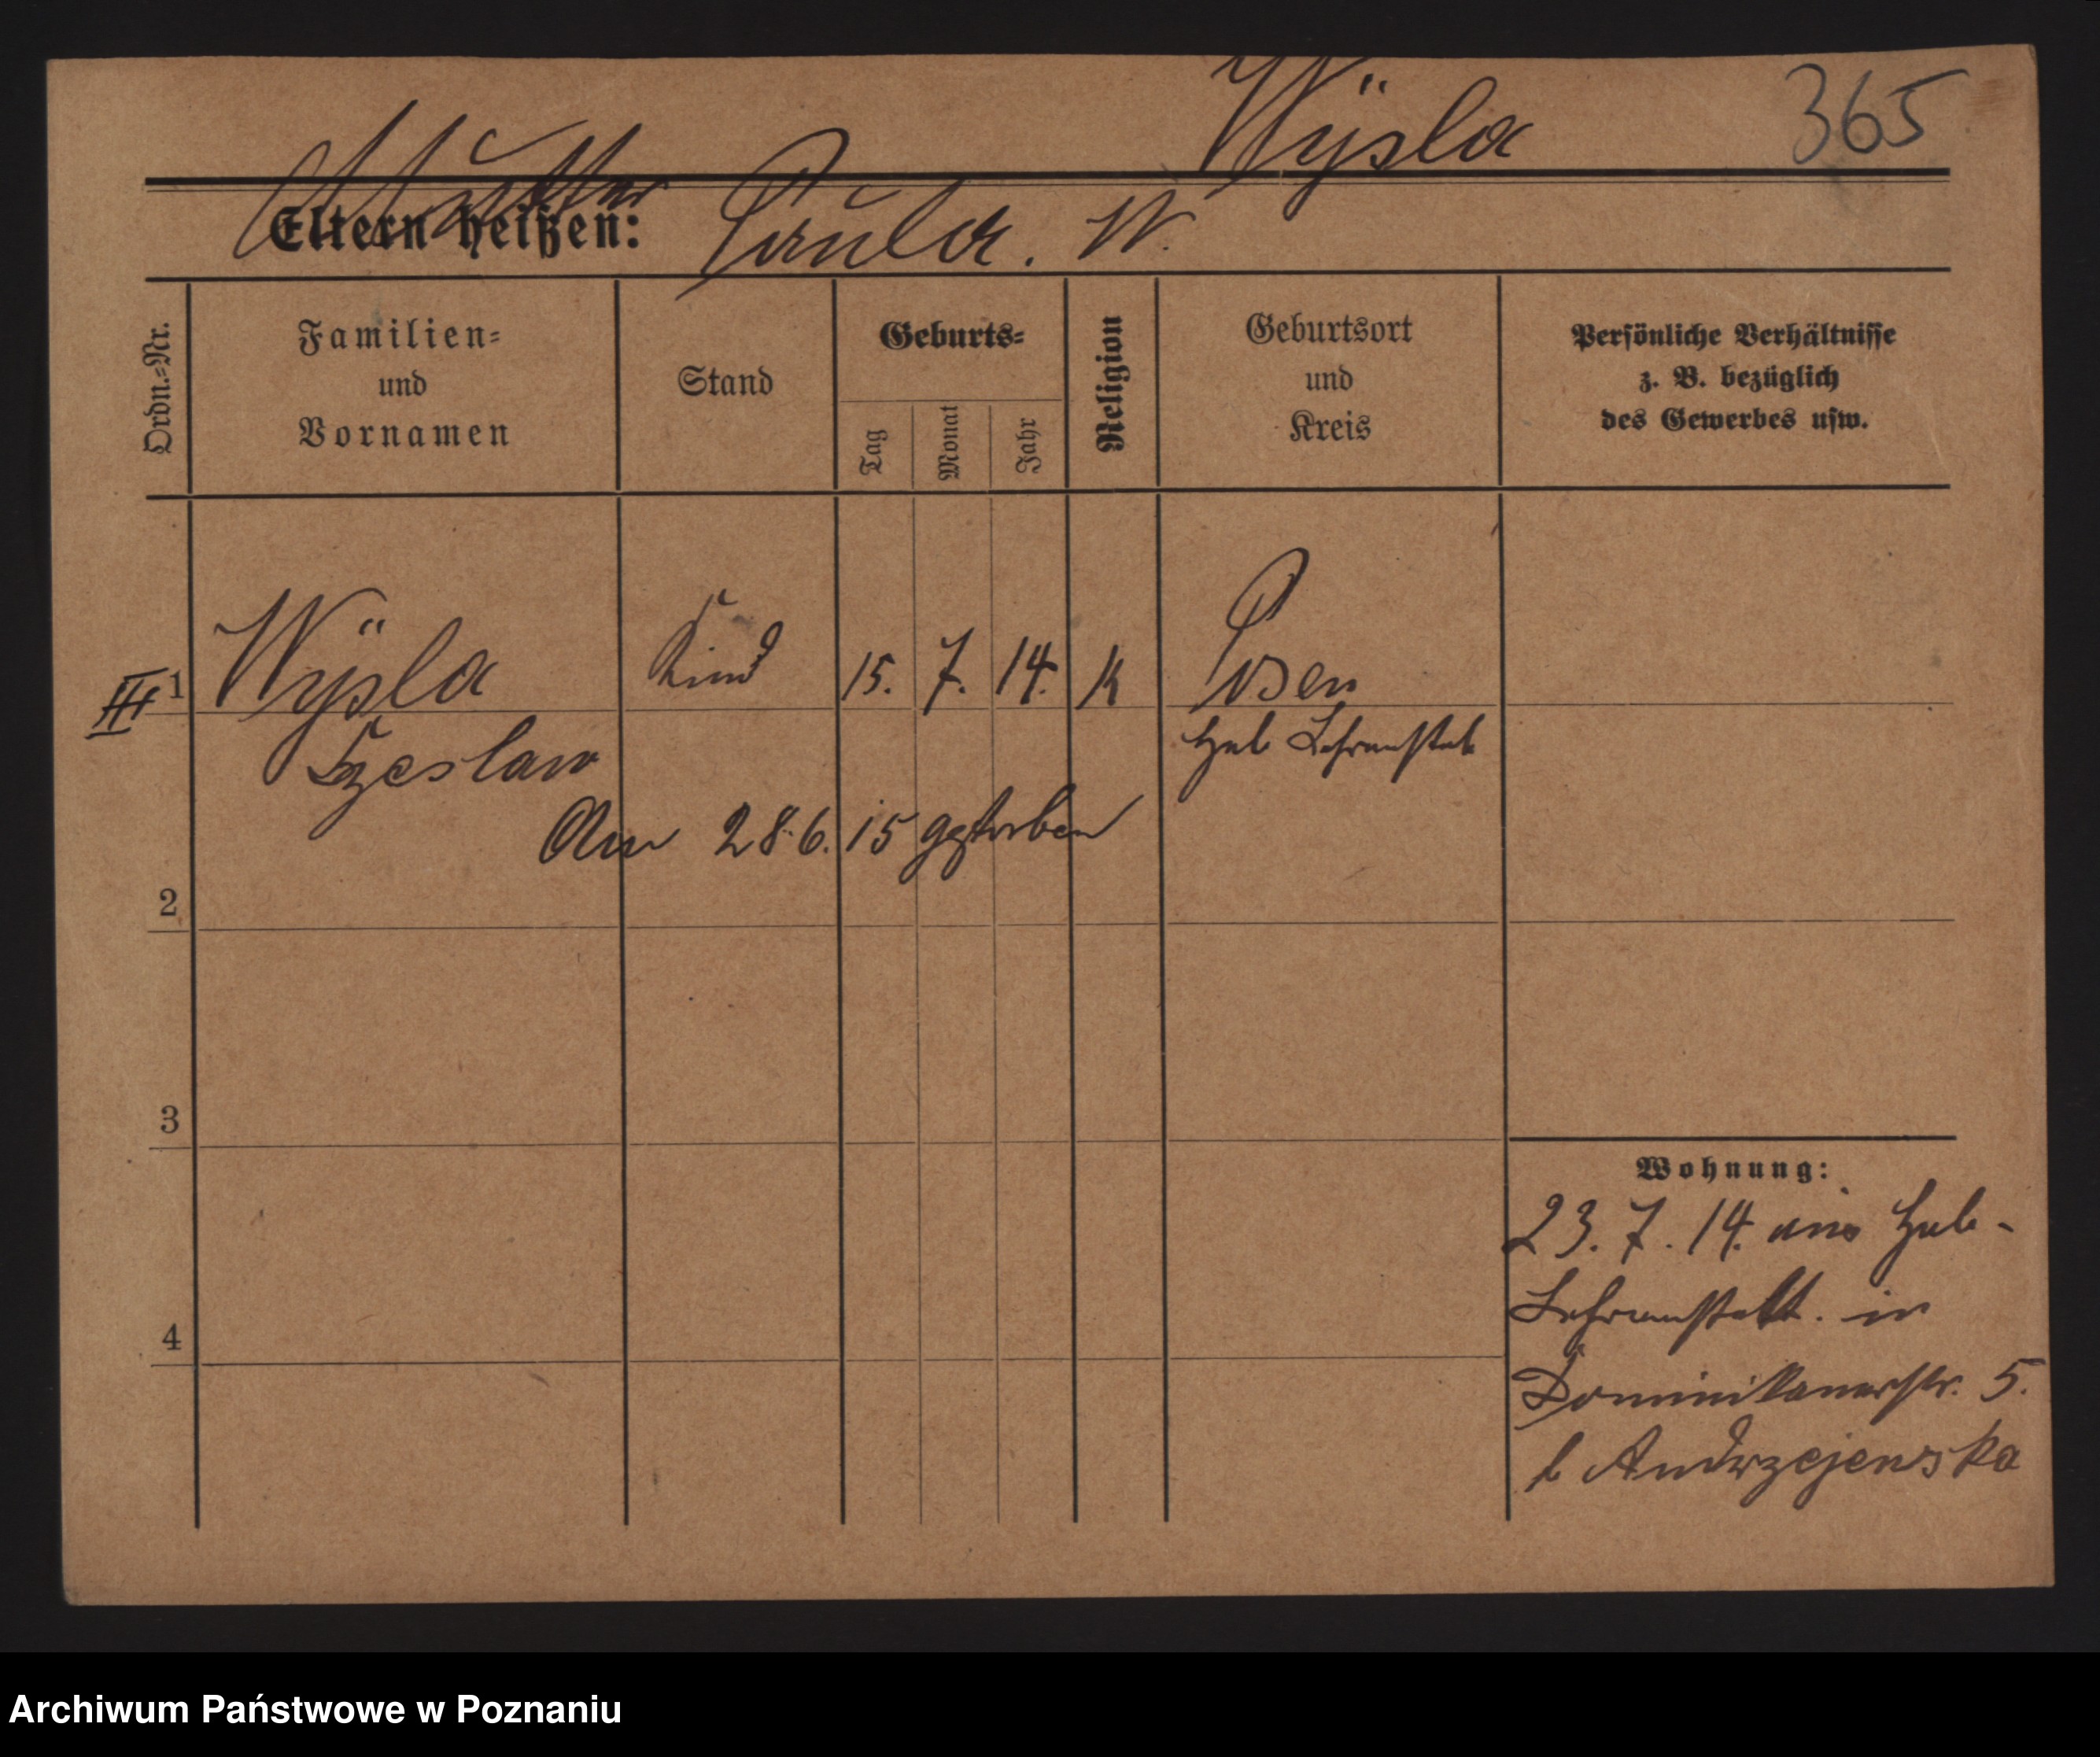 Wÿsla 365
Mutter Paula. W.
Eltern heißen:
Ordn.-Nr.
Familien-
und
Vornamen
Stand
Geburts-
Tag
Monat
Jahr
Religion
Geburtsort
und
Kreis
Persönliche Verhältnisse
z. B. bezüglich
des Gewerbes usw.
III 1 Wÿsla Kind 15. 7. 14. K Posen
Czeslaw Heb Lehranstalt
Am 28.6.15 gestorben
2
3
4
Wohnung:
23. 7. 14. aus Heb-
Lehranstalt. in
Dominikanerstr. 5.
b Andrzejewska
Archiwum Państwowe w Poznaniu